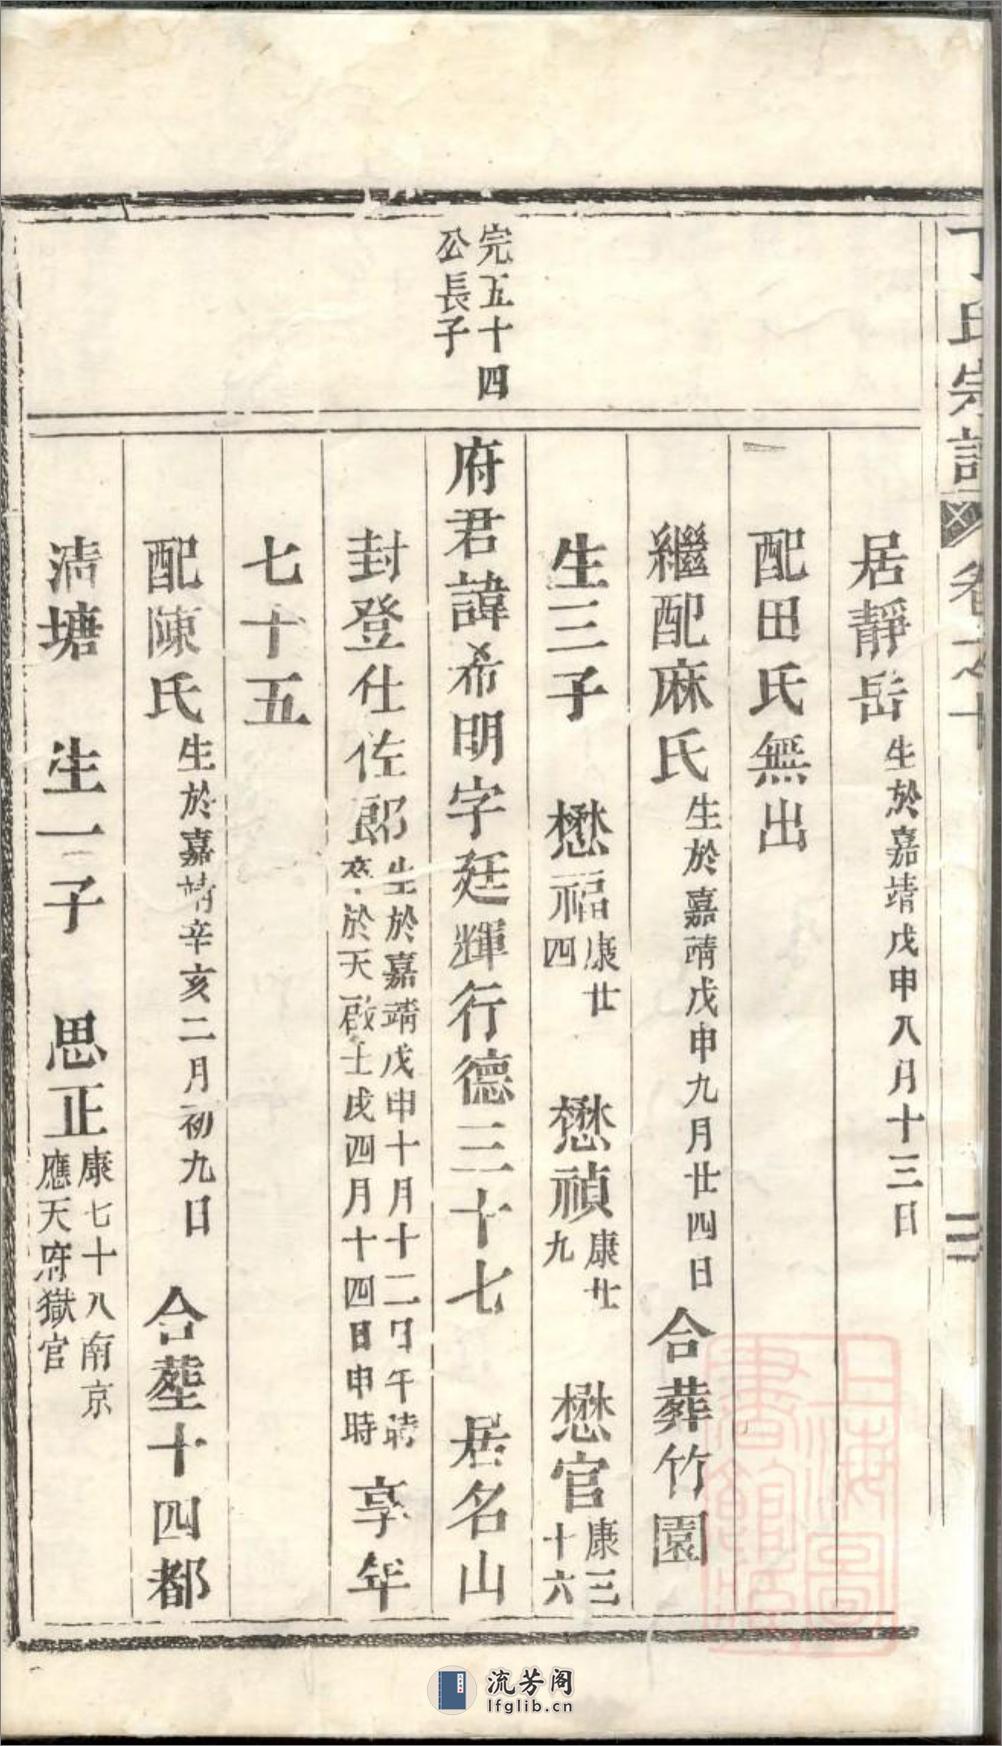 丁氏宗譜 卷之十 三
居靜岳生於嘉靖戊申八月十三日
配田氏無出
繼配麻氏生於嘉靖戊申九月廿四日 合葬竹園
生三子 懋福康廿四 懋禎康廿九 懋官康三十六
完五十四公長子
府君諱希明字廷輝行德三十七 居名山
封登仕佐郎生於嘉靖戊申十月十二日午時卒於天啟壬戌四月十四日申時 享年
七十五
配陳氏生於嘉靖辛亥二月初九日 合塟十四都
清塘 生一子 思正康七十八南京應天府獄官
上海圖書館藏
流芳阁
lfglib.cn